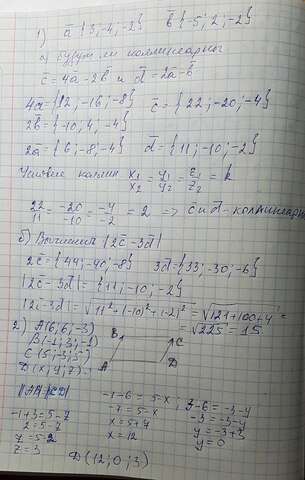 1) a̅ {3;-4;-2} b̅ {-5;2;-2}
а) будут ли коллинеарны
c̅ = 4a̅ - 2b̅ и d̅ = 2a̅ - b̅
4a̅ = {12; -16; -8} c̅ = {22; -20; -4}
2b̅ = {-10; 4; -4}
2a̅ = {6; -8; -4} d̅ = {11; -10; -2}
Условие коллин x₁/x₂ = y₁/y₂ = z₁/z₂ = k
22/11 = -20/-10 = -4/-2 = 2 => c̅ и d̅ - коллинеарны
б) Вычислить |2c̅ - 3d̅|
2c̅ = {44; -40; -8} 3d̅ = {33; -30; -6}
|2c̅ - 3d̅| = {11; -10; -2}
|2c̅ - 3d̅| = √11² + (-10)² + (-2)² = √121+100+4 =
= √225 = 15
2) A(6; 6; -3)
B(-1; 3; -1)
C(5; -3; 5)
D(x; y; z) -
B C
A D
-1+3 = 5-z
2 = 5-z
z = 5-2
z = 3
-1-6 = 5-x
-7 = 5-x
x = 5+7
x = 12
3-6 = -3-y
-3 = -3-y
y = -3+3
y = 0
D(12; 0; 3)